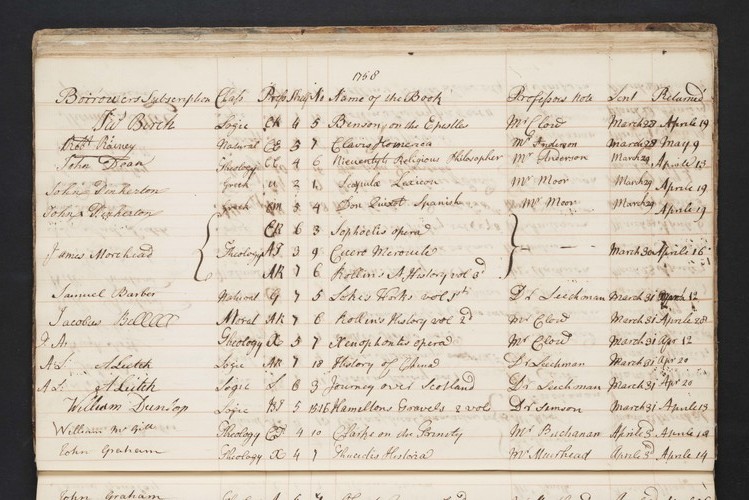 1768
Borrowers Subscription Class Press Shelf No Name of the Book Professors Note Lent Returned
Jas Berch Logic CK 4 5 Benson on the Epistles Mr Clow March 28 Aprile 19
Robt Rainey Natural 5 7 Clavis Homerica Mr Anderson March 28 May 9
John Dean Theology 4 6 Nieuentyts Religious Philosopher Mr Anderson March 29 Aprile 13
John Pinkerton Greek 2 1 Scapula Lexicon Mr Moor March 29 Aprile 19
John Pinkerton Greek 5 4 Don Quixot Spanish Mr Moor March 29 Aprile 19
6 3 Sophocles opera
James Morehead Theology 3 9 Cicero March 30 Aprile 16
AK 7 6 Rollin's A History vol 3d
Samuel Barber Natural G 7 5 Works vol 1st Dr Leechman March 31 12
Jacobus Bell Moral AK 7 6 Rollin's History vol 2d Mr Clow March 31 Aprile 28
J. A. Theology X 5 7 Xenophontis opera Mr Clow March 31 Apr 12
A L A Leitch Logic AK 7 18 History of China Dr Leechman March 31 Apr 20
A L A Leitch Logic L 6 3 Journey over Scotland Dr Leechman March 31 Apr 20
William Dunlop Logic 5 15 16 Hamiltons Travels 2 vols Dr Simson March 31 Aprile 13
William Mc Gill Theology 4 10 Clarke on the Trinity Mr Buchanan Aprile
John Graham Theology X 4 7 Thucidis Historia Mr Muirhead Aprile Aprile 14
John Graham